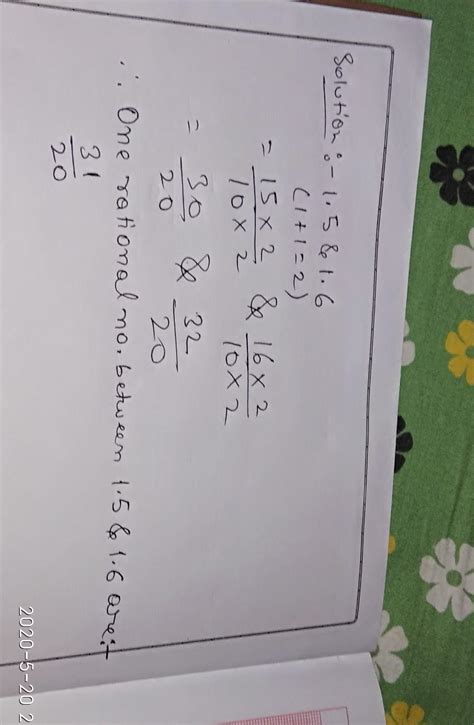 Solution :- 1.5 & 1.6
(1+1=2)
= 15 × 2 / 10 × 2 & 16 × 2 / 10 × 2
= 30/20 & 32/20
∴ One rational no. between 1.5 & 1.6 are:-
31/20
2020-5-20 2